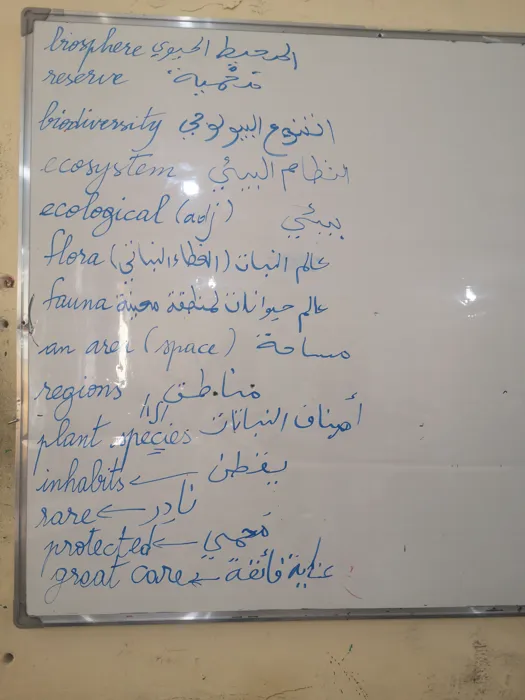 biosphere المحيط الحيوي
reserve محمية
biodiversity التنوع البيولوجي
ecosystem النظام البيئي
ecological (adj) بيئي
flora عالم النبات (الغطاء النباتي)
fauna عالم حيوانات لمنطقة معينة
an area (space) مساحة
regions مناطق
plant species أصناف النباتات
inhabits ← يقطن
rare ← نادِر
protected ← مَحمي
great care ← عناية فائقة